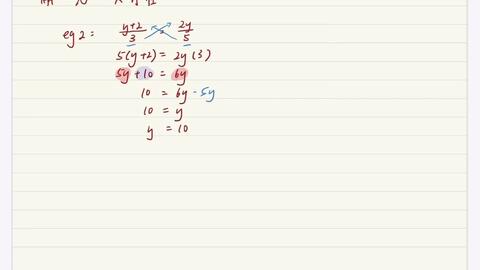 eg 2 : (y+2)/3 = 2y/5
5(y+2) = 2y(3)
5y + 10 = 6y
10 = 6y - 5y
10 = y
y = 10